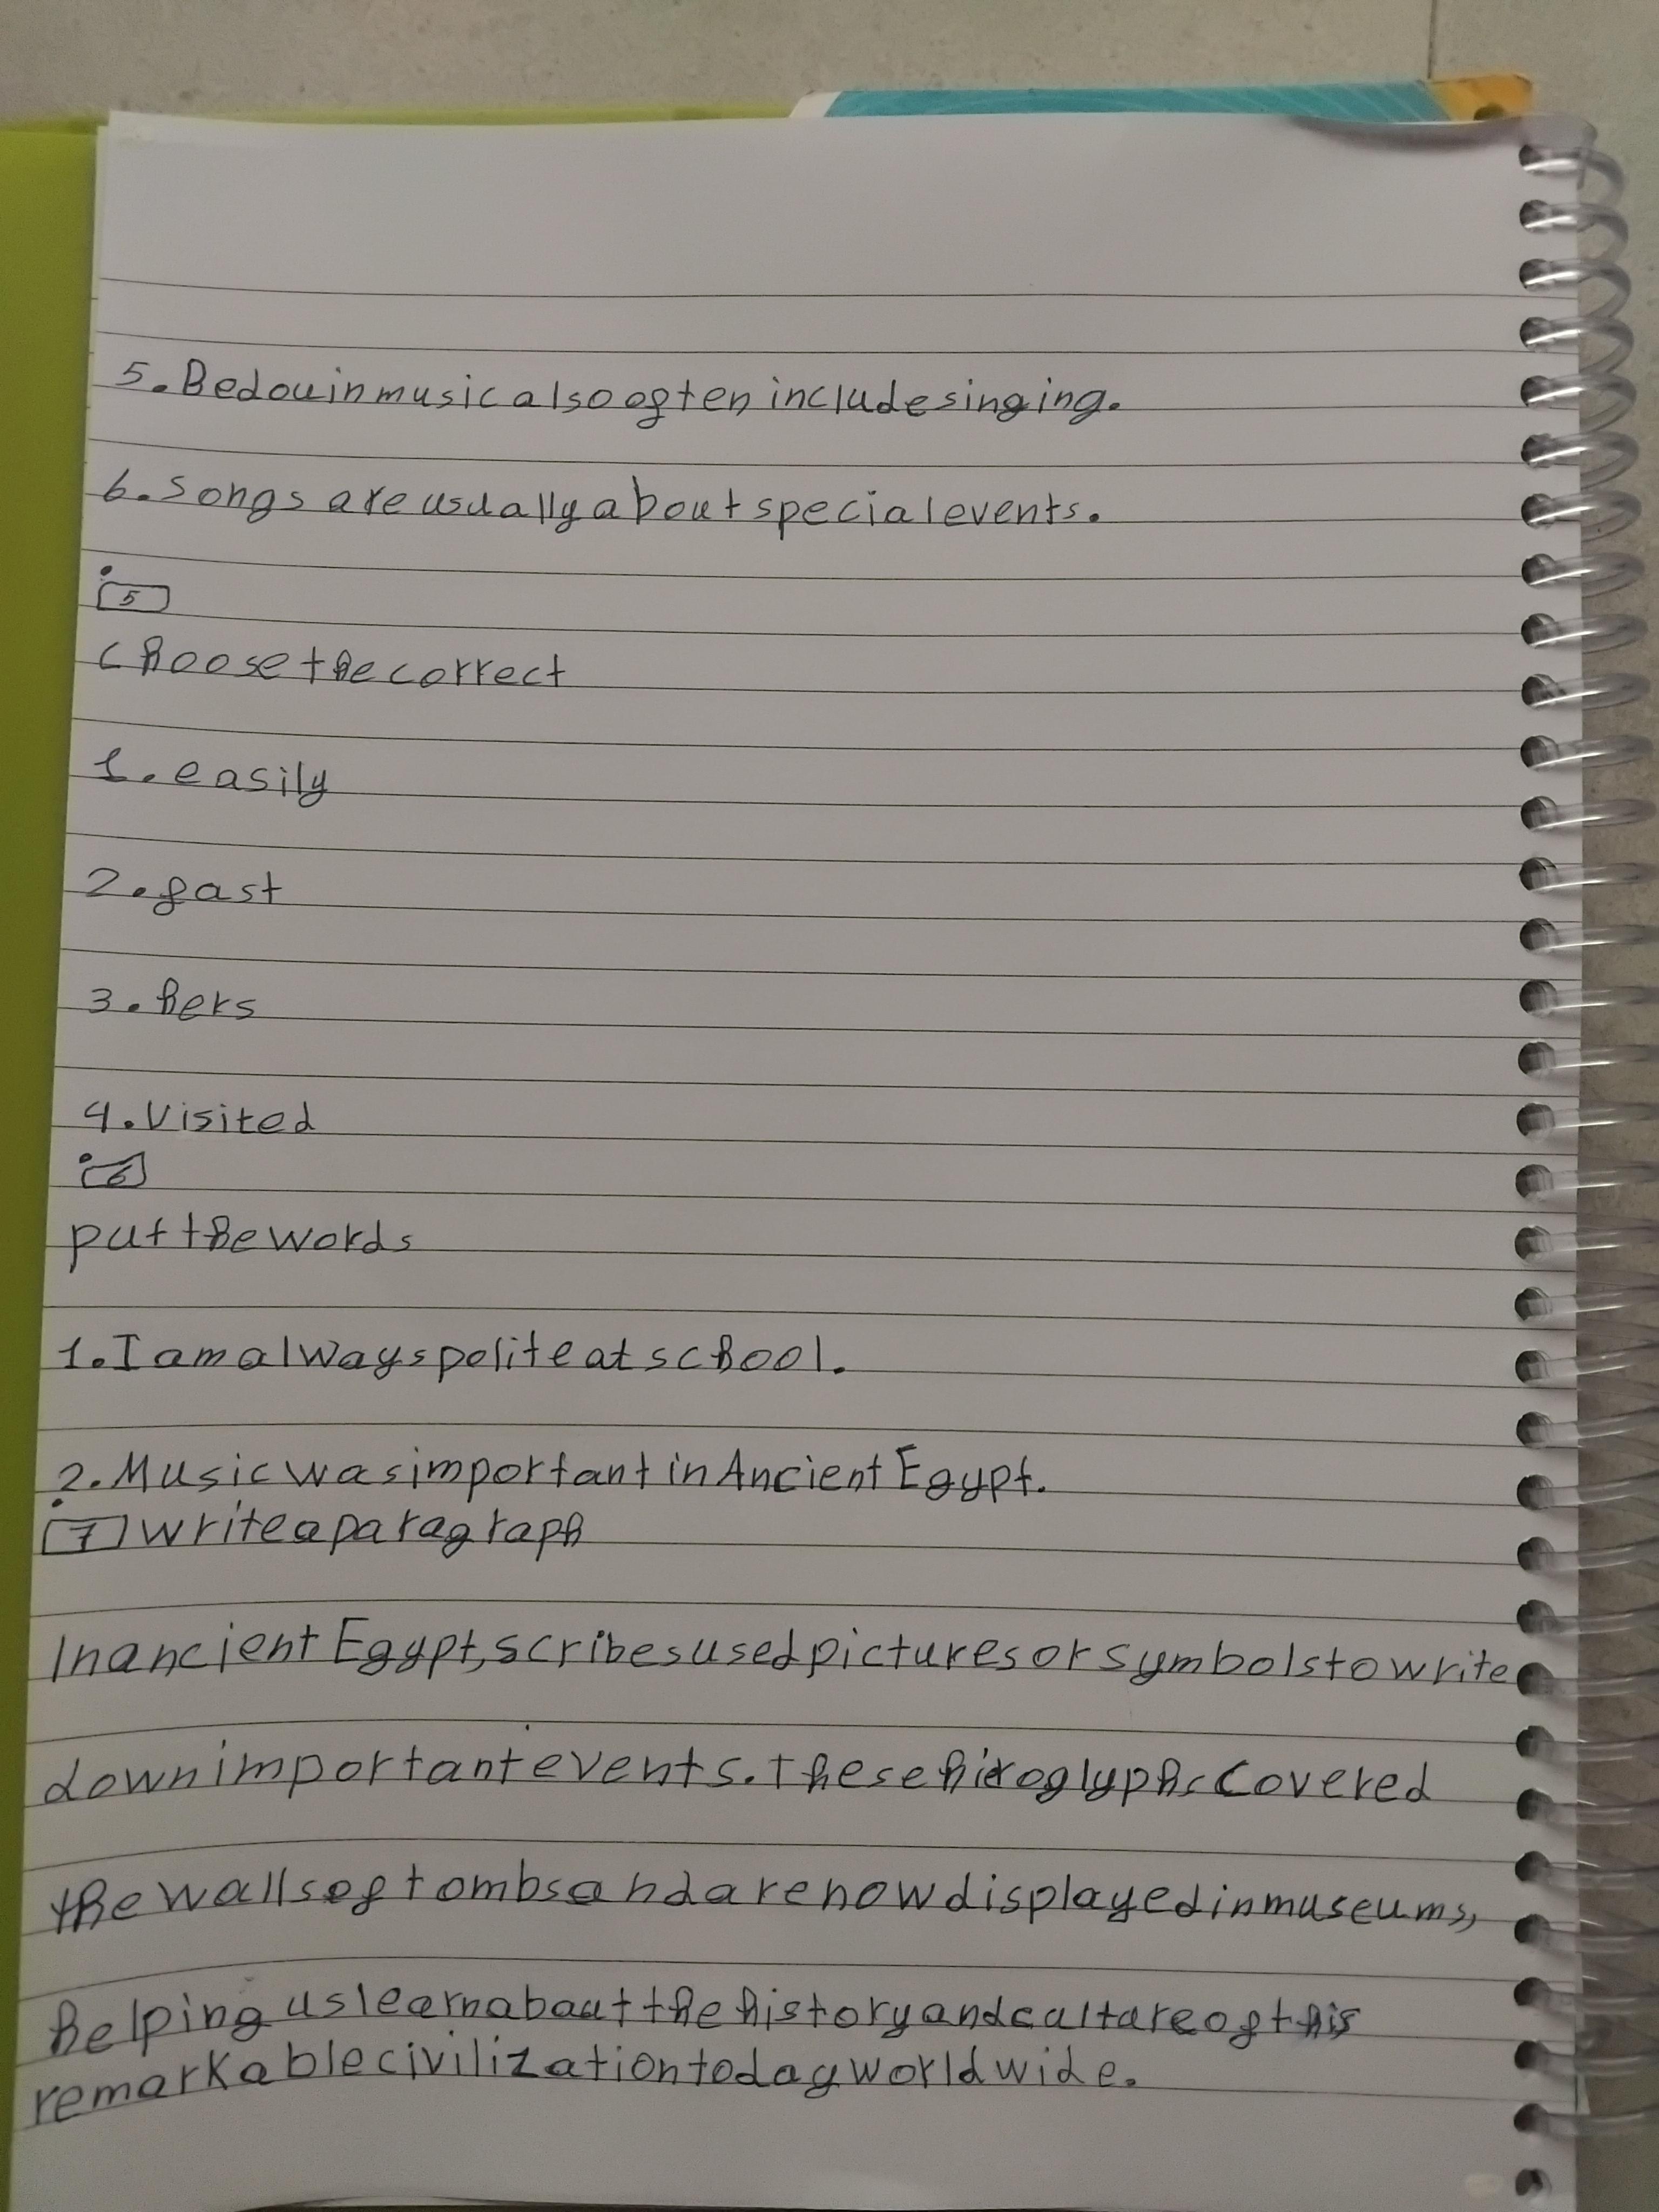 5. Bedouin music also often include singing.
6. Songs are usually about special events.
5
choose the correct
1. easily
2. fast
3. hers
4. Visited
6
put the words
1. I am always polite at school.
2. Music was important in Ancient Egypt.
7 write a paragraph
In ancient Egypt, scribes used pictures or symbols to write
down important events. These hiroglyphs covered
the walls of tombs and are now displayed in museums,
helping us learn about the history and culture of this
remarkable civilization today worldwide.